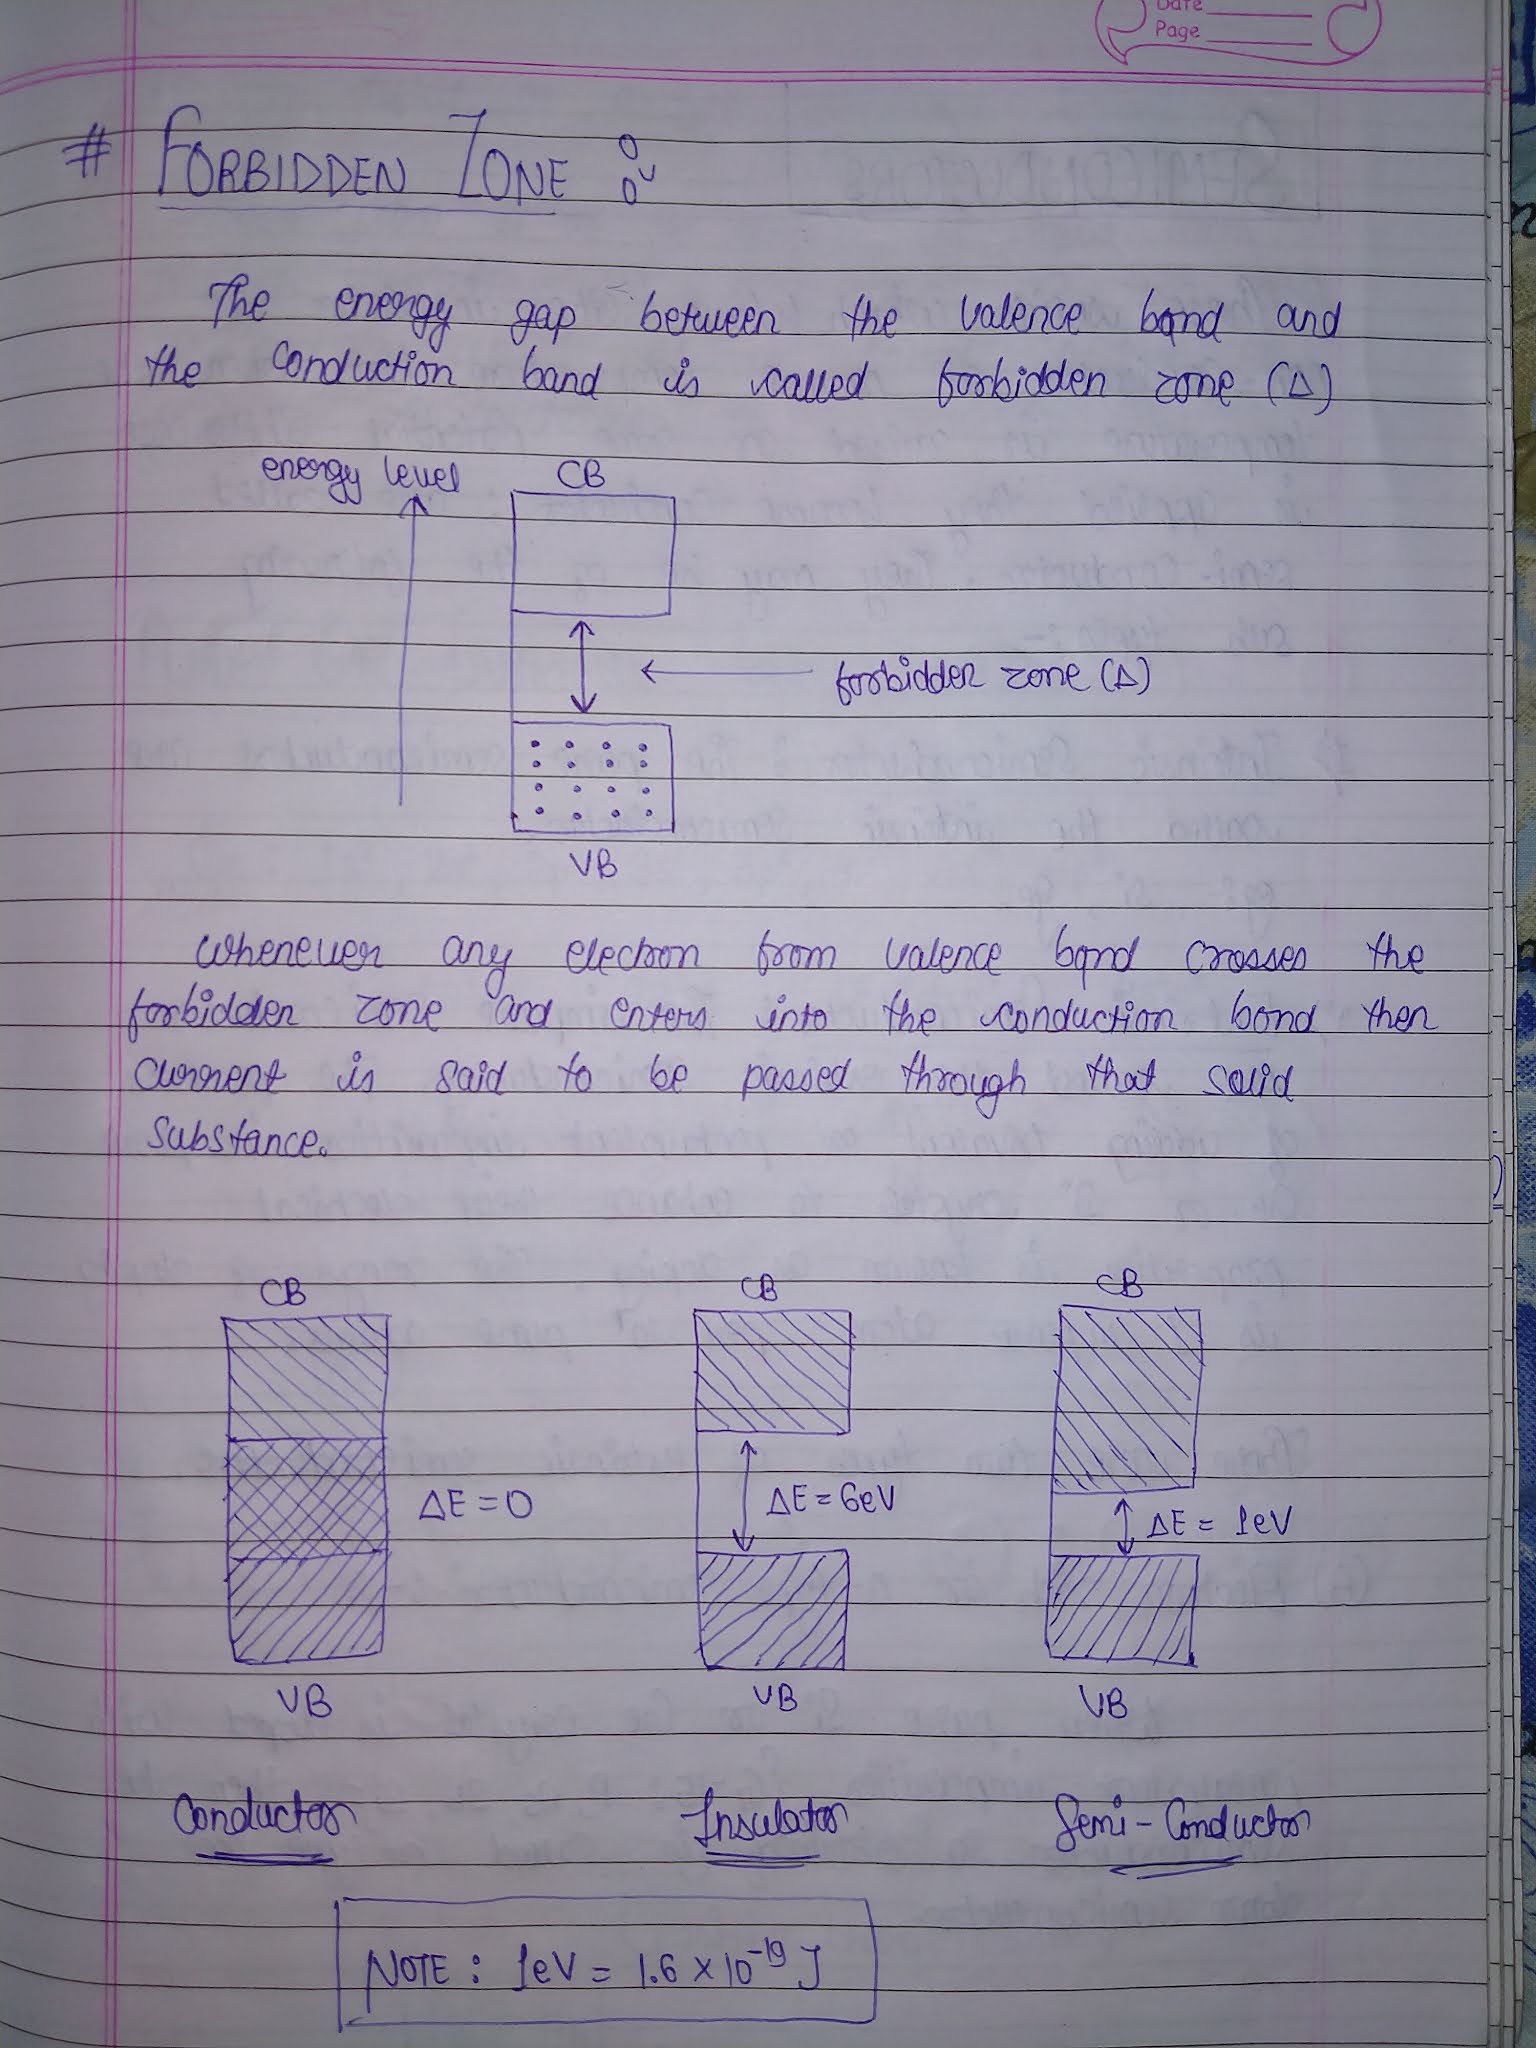 Date
Page
# FORBIDDEN ZONE :
The energy gap between the valence band and
the conduction band is called forbidden zone (Δ)
energy level
CB
forbidden zone (Δ)
VB
Whenever any electron from valence band crosses the
forbidden zone and enters into the conduction band then
current is said to be passed through that solid
substance.
CB CB CB
ΔE = 0 ΔE = 6eV ΔE = 1eV
VB VB VB
Conductor Insulator Semi-Conductor
NOTE : 1eV = 1.6 × 10⁻¹⁹ J